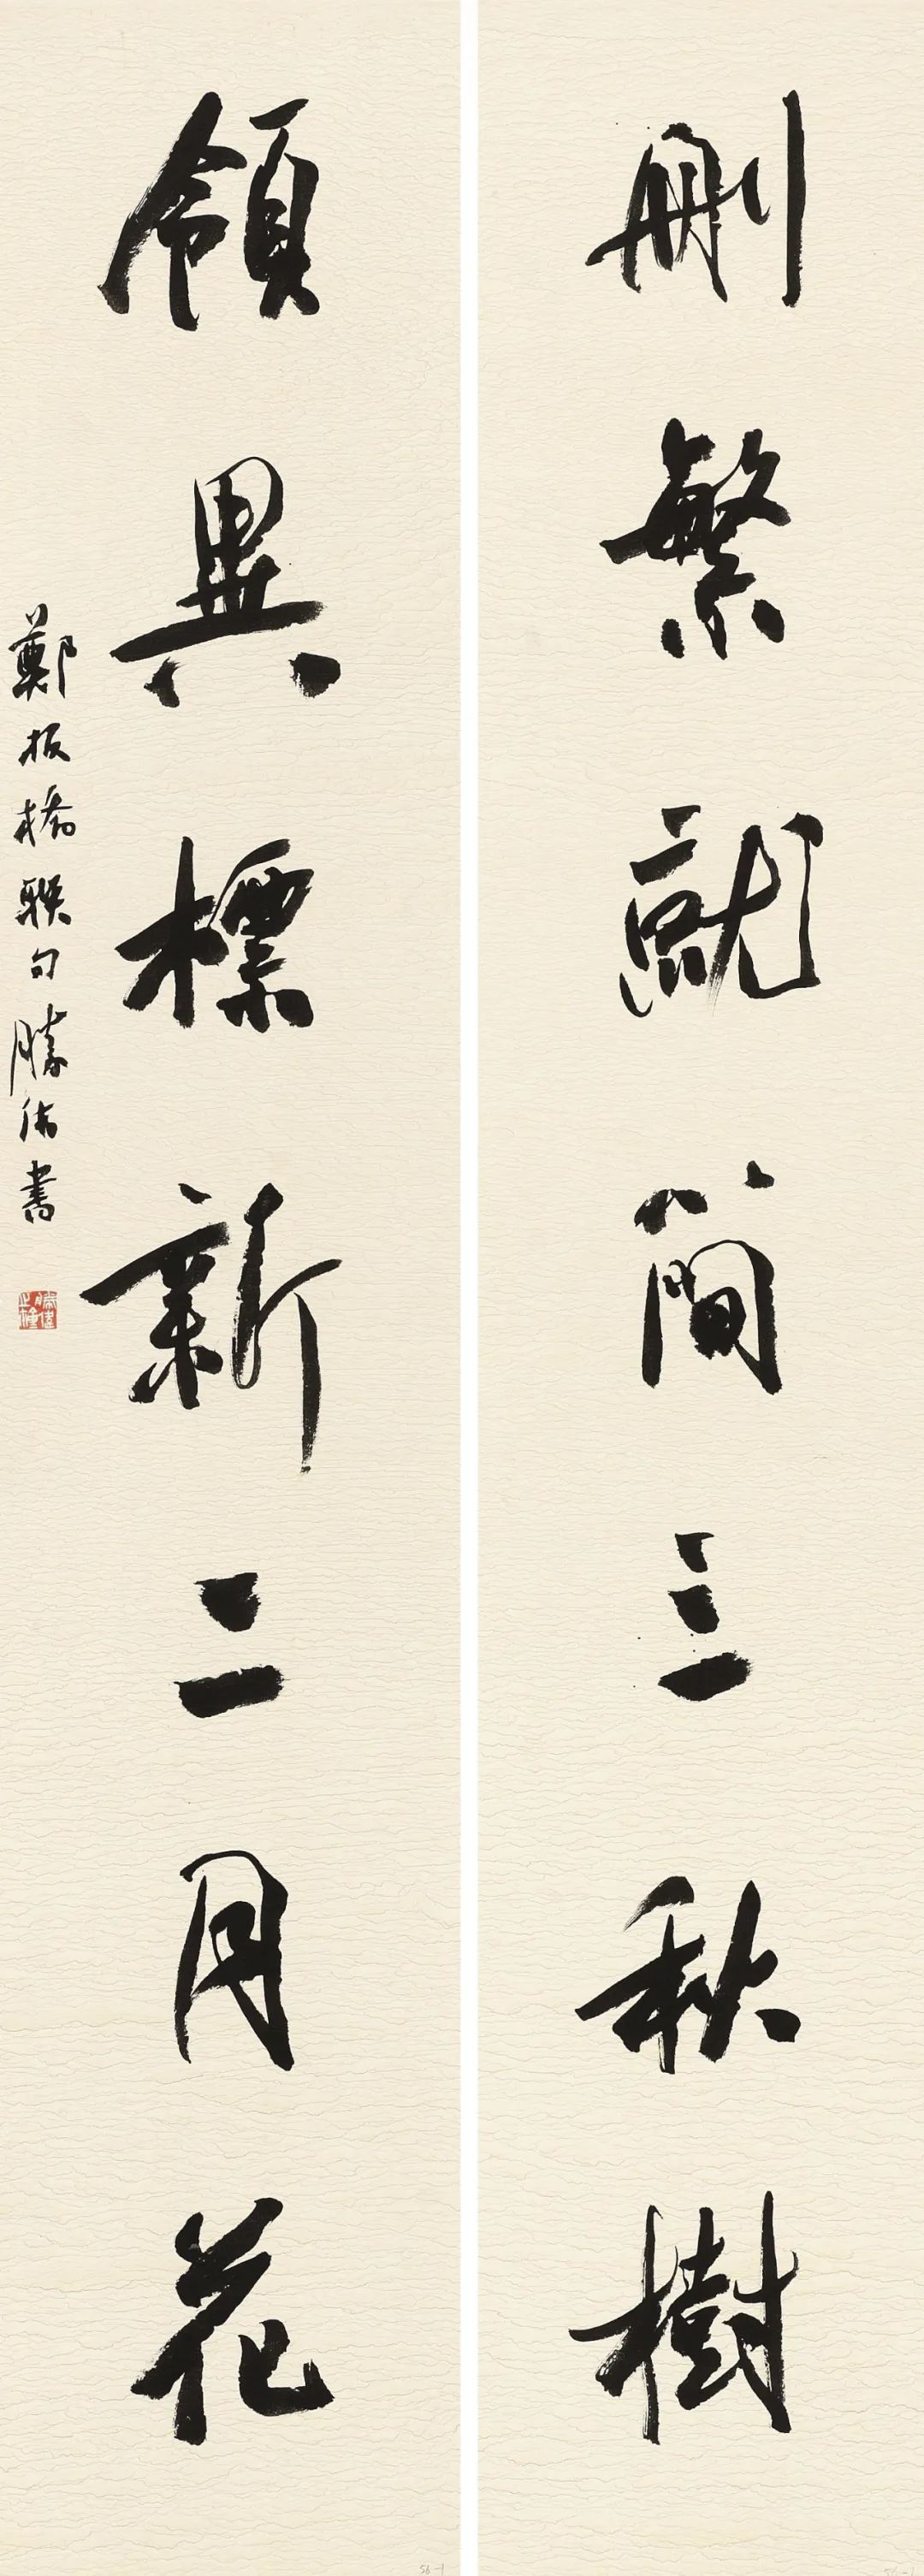 刪繁就簡三秋樹
領異標新二月花
鄭板橋聯句勝偉書